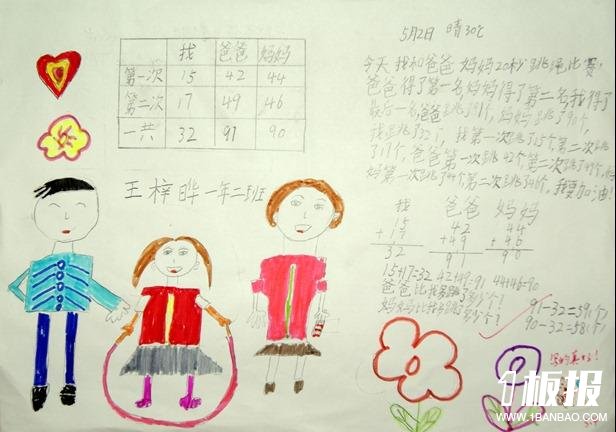 我 爸爸 妈妈
第一次 15 42 44
第二次 17 49 46
一共 32 91 90
王梓晔 一年二班
5月2日 晴30℃
今天我和爸爸妈妈20秒跳绳比赛,
爸爸得了第一名妈妈得了第二名我得了
最后一名爸爸跳了91个,妈妈跳了90个,
我跳了32个,我第一次跳了15个第二次跳
了17个,爸爸第一次跳42个第二次跳了49个,妈
妈第一次跳了44个第二次跳46个。我要加油!
我 爸爸 妈妈
15 42 44
+17 +49 +46
32 91 90
15+17=32 42+49=91 44+46=90
爸爸比我多跳多少个? 91-32=59(个)
妈妈比我多跳多少个? 90-32=58(个)
写的真好!
1板报
WWW.1BANBAO.COM